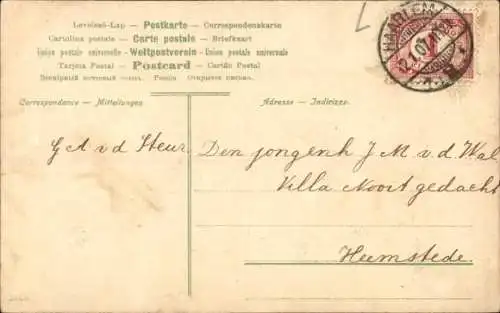 Levelező-Lap — Postkarte — Correspondenzkarte
Cartolina postale — Carte postale — Briefkaart
Union postale universelle — Weltpostverein — Unione postale universale
Tarjeta Postal — Postcard — Cartão Postal
Correspondance — Mitteilungen
Adresse — Indirizzo
HAARLEM
G A v d Steur
Den jongenh J M v. d Wal
Villa Nooit gedacht
Heemstede.